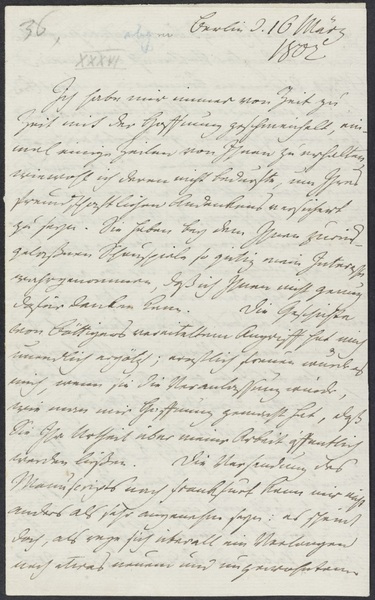 36,
XXXVI
Berlin d. 16 März
1802
Ich habe mir immer von Zeit zu
Zeit mit der Hoffnung geschmeichelt, ein-
mal einige Zeilen von Ihnen zu erhalten,
wiewohl ich deren nicht bedurfte, um Ihres
freundschaftlichen Andenkens versichert
zu seyn. Sie haben bey dem Ihnen zurück-
gelaßnen Schauspiele so gütig mein Interesse
wahrgenommen, daß ich Ihnen nicht genug
dafür danken kann. Die Geschichte
von Böttigers vereiteltem Angriff hat mich
unendlich ergötzt; erstlich freuen würde es
mich, wenn sie die Veranlassung würde,
wie man mir Hoffnung gemacht hat, daß
Sie Ihr Urtheil über meine Arbeit öffentlich
werden ließen. Die Versendung des
Manuscripts nach Frankfurt kann mir nicht
anders als sehr angenehm seyn: es scheint
doch, als rege sich überall ein Verlangen
nach etwas neuem und ungewohntem